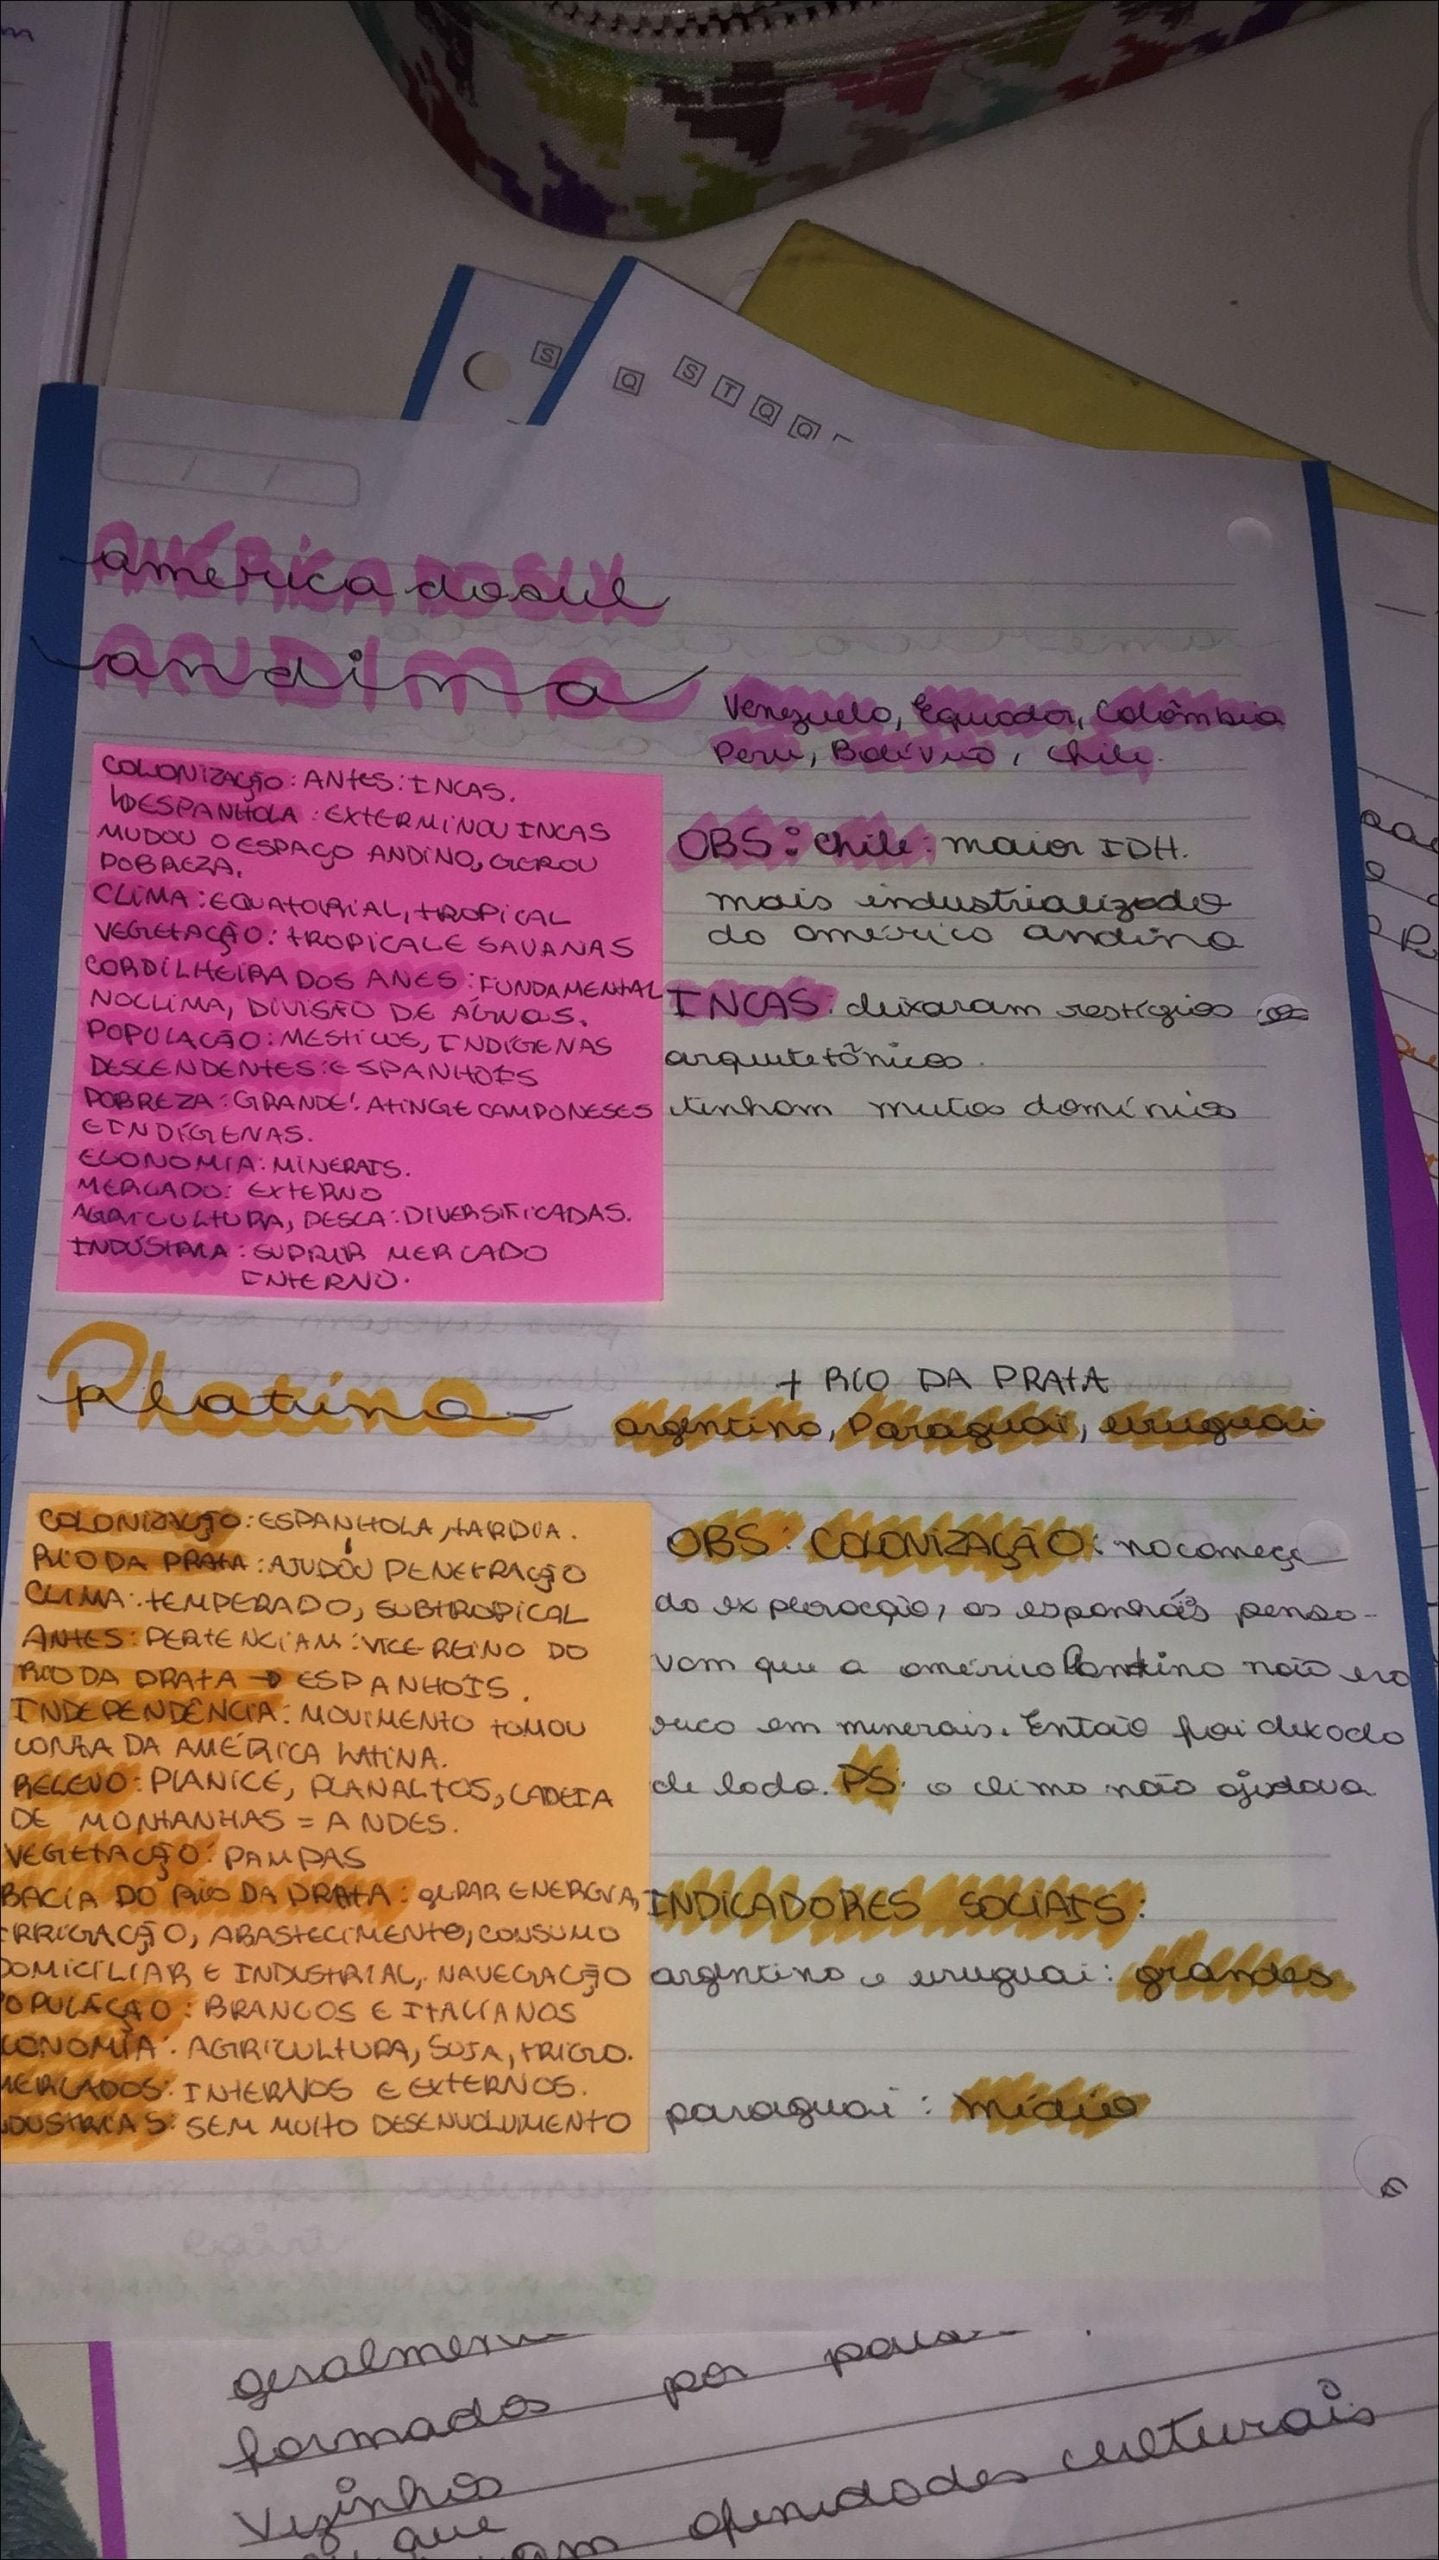 S
Q S T Q Q
américa do sul
andina
Venezuela, Equador, Colômbia
Peru, Bolívia, Chile.
COLONIZAÇÃO: ANTES: INCAS.
ESPANHOLA: EXTERMINOU INCAS
MUDOU O ESPAÇO ANDINO, GEROU
POBREZA.
CLIMA: EQUATORIAL, TROPICAL
VEGETAÇÃO: TROPICAL E SAVANAS
CORDILHEIRA DOS ANES: FUNDAMENTAL
NO CLIMA, DIVISÃO DE ÁGUAS.
POPULAÇÃO: MESTIÇOS, INDÍGENAS
DESCENDENTES: ESPANHÓIS
POBREZA: GRANDE! ATINGE CAMPONESES
E INDÍGENAS.
ECONOMIA: MINERAIS.
MERCADO: EXTERNO
AGRICULTURA, PESCA: DIVERSIFICADAS.
INDÚSTRIA: SUPRIR MERCADO
INTERNO.
OBS: Chile: maior IDH.
mais industrializado
da américa andina
INCAS: deixaram vestígios
arquitetônicos.
tinham muitos domínios
Platina
+ RIO DA PRATA
argentina, Paraguai, uruguai
COLONIZAÇÃO: ESPANHOLA, TARDIA.
RIO DA PRATA: AJUDOU PENETRAÇÃO
CLIMA: TEMPERADO, SUBTROPICAL
ANTES: PERTENCIAM: VICE REINO DO
RIO DA PRATA → ESPANHÓIS.
INDEPENDÊNCIA: MOVIMENTO TOMOU
CONTA DA AMÉRICA LATINA.
RELEVO: PLANICE, PLANALTOS, CADEIA
DE MONTANHAS = ANDES.
VEGETAÇÃO: PAMPAS
BACIA DO RIO DA PRATA: GERAR ENERGIA,
IRRIGAÇÃO, ABASTECIMENTO, CONSUMO
DOMICILIAR E INDUSTRIAL, NAVEGAÇÃO
OPULAÇÃO: BRANCOS E ITALIANOS
CONOMIA: AGRICULTURA, SOJA, TRIGO.
MERCADOS: INTERNOS E EXTERNOS.
NDÚSTRIAS: SEM MUITO DESENVOLVIMENTO
OBS: COLONIZAÇÃO: no começo
da exploração, os espanhóis pensa-
vam que a américa platina não era
rica em minerais. Então foi deixado
de lado. PS: o clima não ajudava
INDICADORES SOCIAIS:
argentina e uruguai: grandes
paraguai: médio
formados por
Vizinhos
que
afinidades culturais